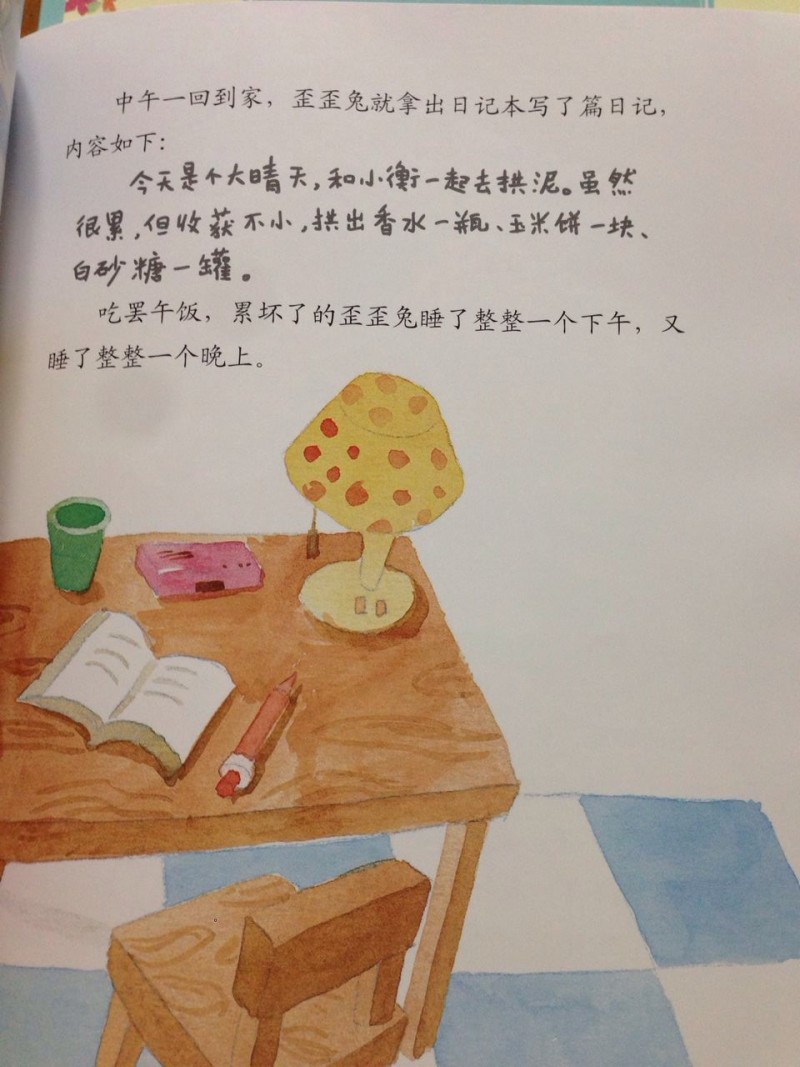 中午一回到家，歪歪兔就拿出日记本写了篇日记，
内容如下：
今天是个大晴天，和小衡一起去拱泥。虽然
很累，但收获不小，拱出香水一瓶、玉米饼一块、
白砂糖一罐。
吃罢午饭，累坏了的歪歪兔睡了整整一个下午，又
睡了整整一个晚上。